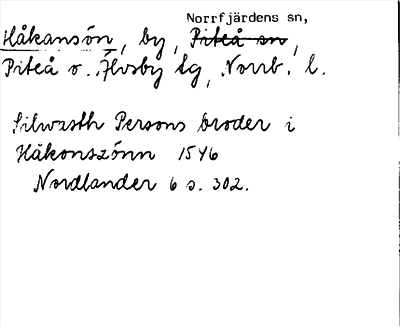 Norrfjärdens sn,
Håkansön, by, Piteå sn,
Piteå o. Älvsby tg, Norrb. l.
Silwasth Persons broder i
Håkonszönn 1546
Nordlander 6 s. 302.